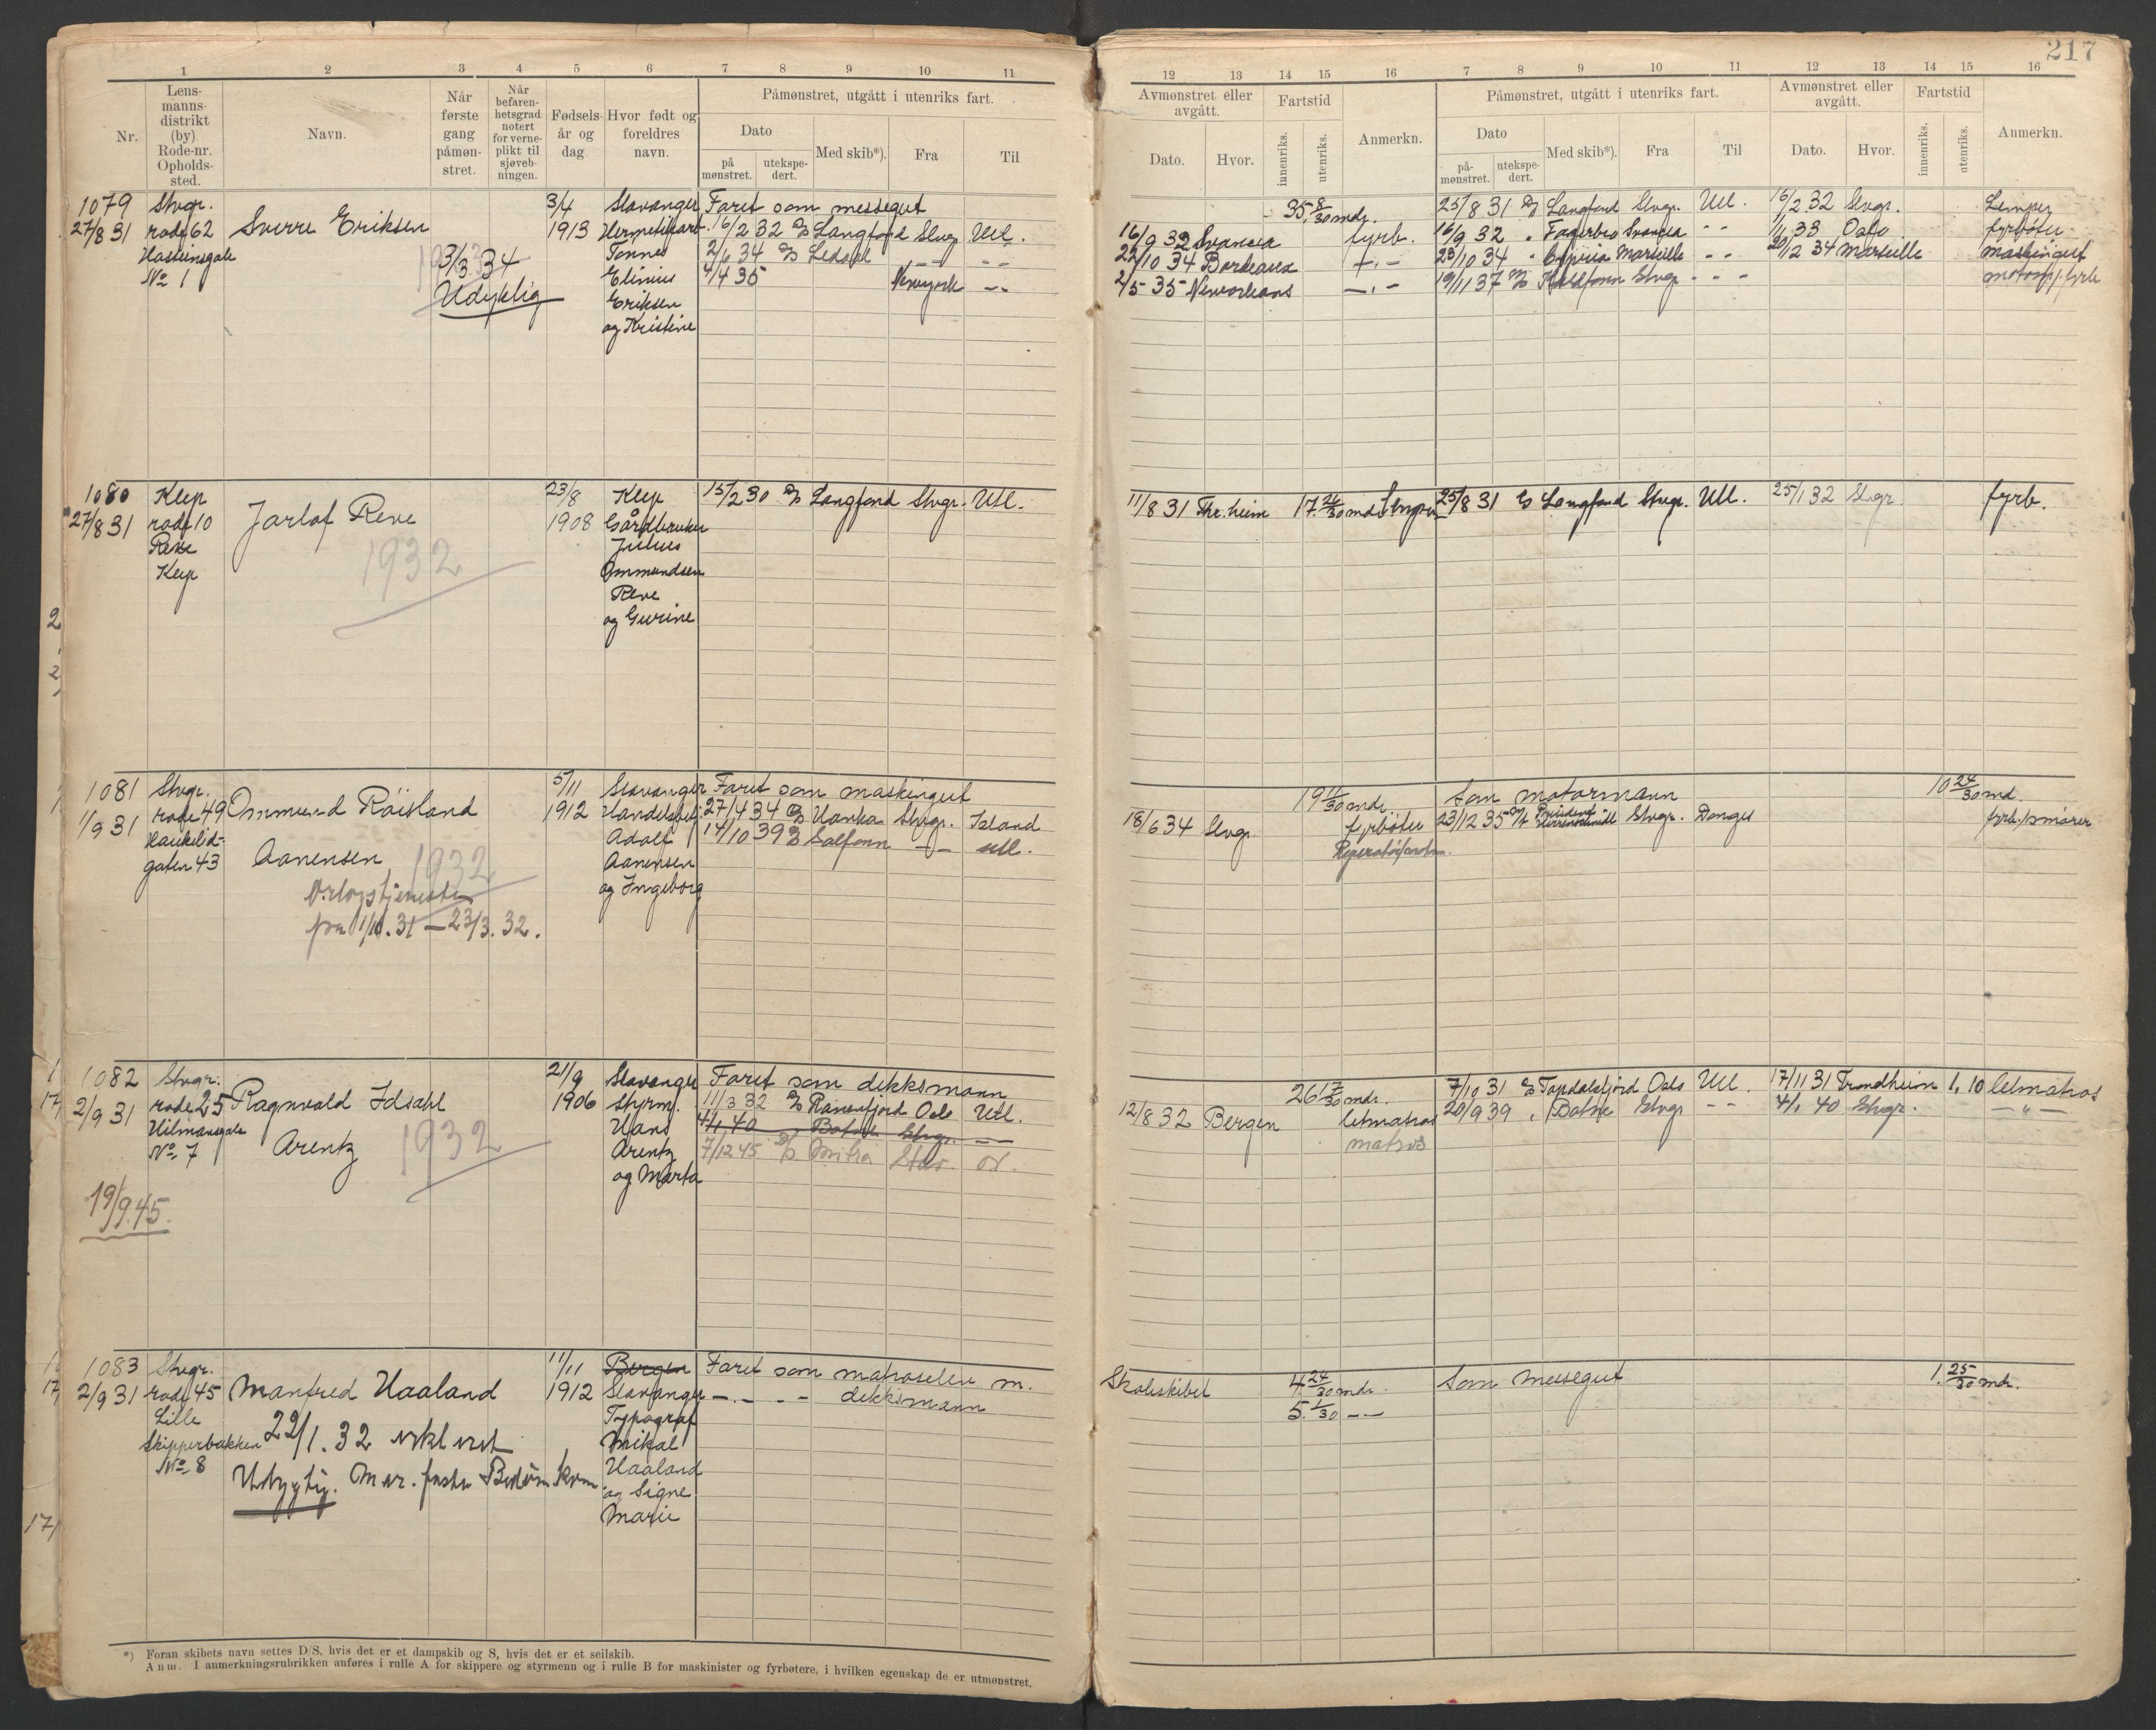 217
1 2 3 4 5 6 7 8 9 10 11
Nr.
Lens-
manns-
distrikt
(by)
Rode-nr.
Opholds-
sted.
Navn.
Når
første
gang
påmøn-
stret.
Når
befaren-
hetsgrad
notert
for verne-
plikt til
sjøveb-
ningen.
Fødsels-
år og
dag
Hvor født og
foreldres
navn.
Påmønstret, utgått i utenriks fart.
Dato
på
mønstret.
utekspe-
dert.
Med skib*).
Fra
Til
12 13 14 15 16 7 8 9 10 11 12 13 14 15 16
Avmønstret eller
avgått.
Dato.
Hvor.
Fartstid
innenriks.
utenriks.
Anmerkn.
Påmønstret, utgått i utenriks fart.
Dato
på-
mønstret.
utekspe-
dert.
Med skib*).
Fra
Til
Avmønstret eller
avgått.
Dato.
Hvor.
Fartstid
innenriks.
utenriks.
Anmerkn.
1079
27/8 31
Stvgr.
rode 62
No 1
Sverre Eriksen
3/3 34
Udyktig
3/4
1913
Stavanger
Tønnes
Elinius
Eriksen
og Kristine
Faret som messegut
16/2 32 D/S Langfond Stvgr. Utl.
2/6 34 D/S Ledaal - - - -
4/4 35 Newyork - -
35 8/30 mdr.
16/9 32 Svansea fyrb.
22/10 34 Bordeaux - " -
2/5 35 Neworleans - " -
25/8 31 D/S Langfond Stvgr. Utl. 16/2 32 Stvgr. Lemper
16/9 32 " Fagerbro Svansea - - 1/1 33 Oslo fyrbøter
23/10 34 " Marseille - - 20/2 34 Marseille maskingut
19/11 37 Stvgr. - - -
1080
27/8 31
Klep
rode 10
Reve
Klep
Jarlof Reve
1932
23/8
1908
Klep
Gårdbruker
Julius
Ommundsen
Reve
og Gurine
15/2 30 D/S Langfond Stvgr. Utl.
11/8 31 Thr.heim 17 26/30 mdr. Lemper
25/8 31 D/S Langfond Stvgr. Utl. 25/1 32 Stvgr. fyrb.
1081
1/9 31
Stvgr.
rode 49
Haukelid-
gaten 43
Ommund Röisland
Aanensen
1932
Orlogstjeneste
fra 1/10.31 - 23/3.32.
5/11
1912
Stavanger
Adolf
Aanensen
og Ingeborg
Faret som maskingut
27/4 34 D/S Hanka Stvgr. Island
14/10 39 D/S Solfonn - - utl.
19 11/30 mdr.
18/6 34 Stvgr. fyrbøter
Som motormann
10 24/30 md.
23/12 35 Stvgr. Donges fyrb./smører
1082
2/9 31
Stvgr.
rode 25
No 7
19/9.45.
Ragnvald Idsahl
Arentz
1932
21/9
1906
Stavanger
Styrm.
Hans
Arentz
og Marta
Faret som dekksmann
11/3 32 D/S Ranenfjord Oslo Utl.
4/1 40 Stvgr. - -
7/12 45 D/S Mitra Stav.
26 17/30 mdr.
12/8 32 Bergen letmatros
matros
7/10 31 D/S Topdalsfjord Oslo Utl. 17/11 31 Trondheim 1, 10 letmatros
20/9 39 " Stvgr. - - 4/1 40 Stvgr. - " -
1083
2/9 31
Stvgr.
rode 45
Lille
Skipperbakken
No 8
Manfred Haaland
22/1.32
Udyktig.
11/11
1912
Bergen
Stavanger
Typograf
Mikal
Haaland
og Signe
Marie
Faret som matroselev m.
- " - - dekksmann
Skoleskibet 4 24/30 mdr.
5. 1/30 - -
Som messegut 1. 25/30 mdr.
*) Foran skibets navn settes D/S, hvis det er et dampskib og S, hvis det er et seilskib.
Anm. I anmerkningsrubrikken anføres i rulle A for skippere og styrmenn og i rulle B for maskinister og fyrbøtere, i hvilken egenskap de er utmønstret.